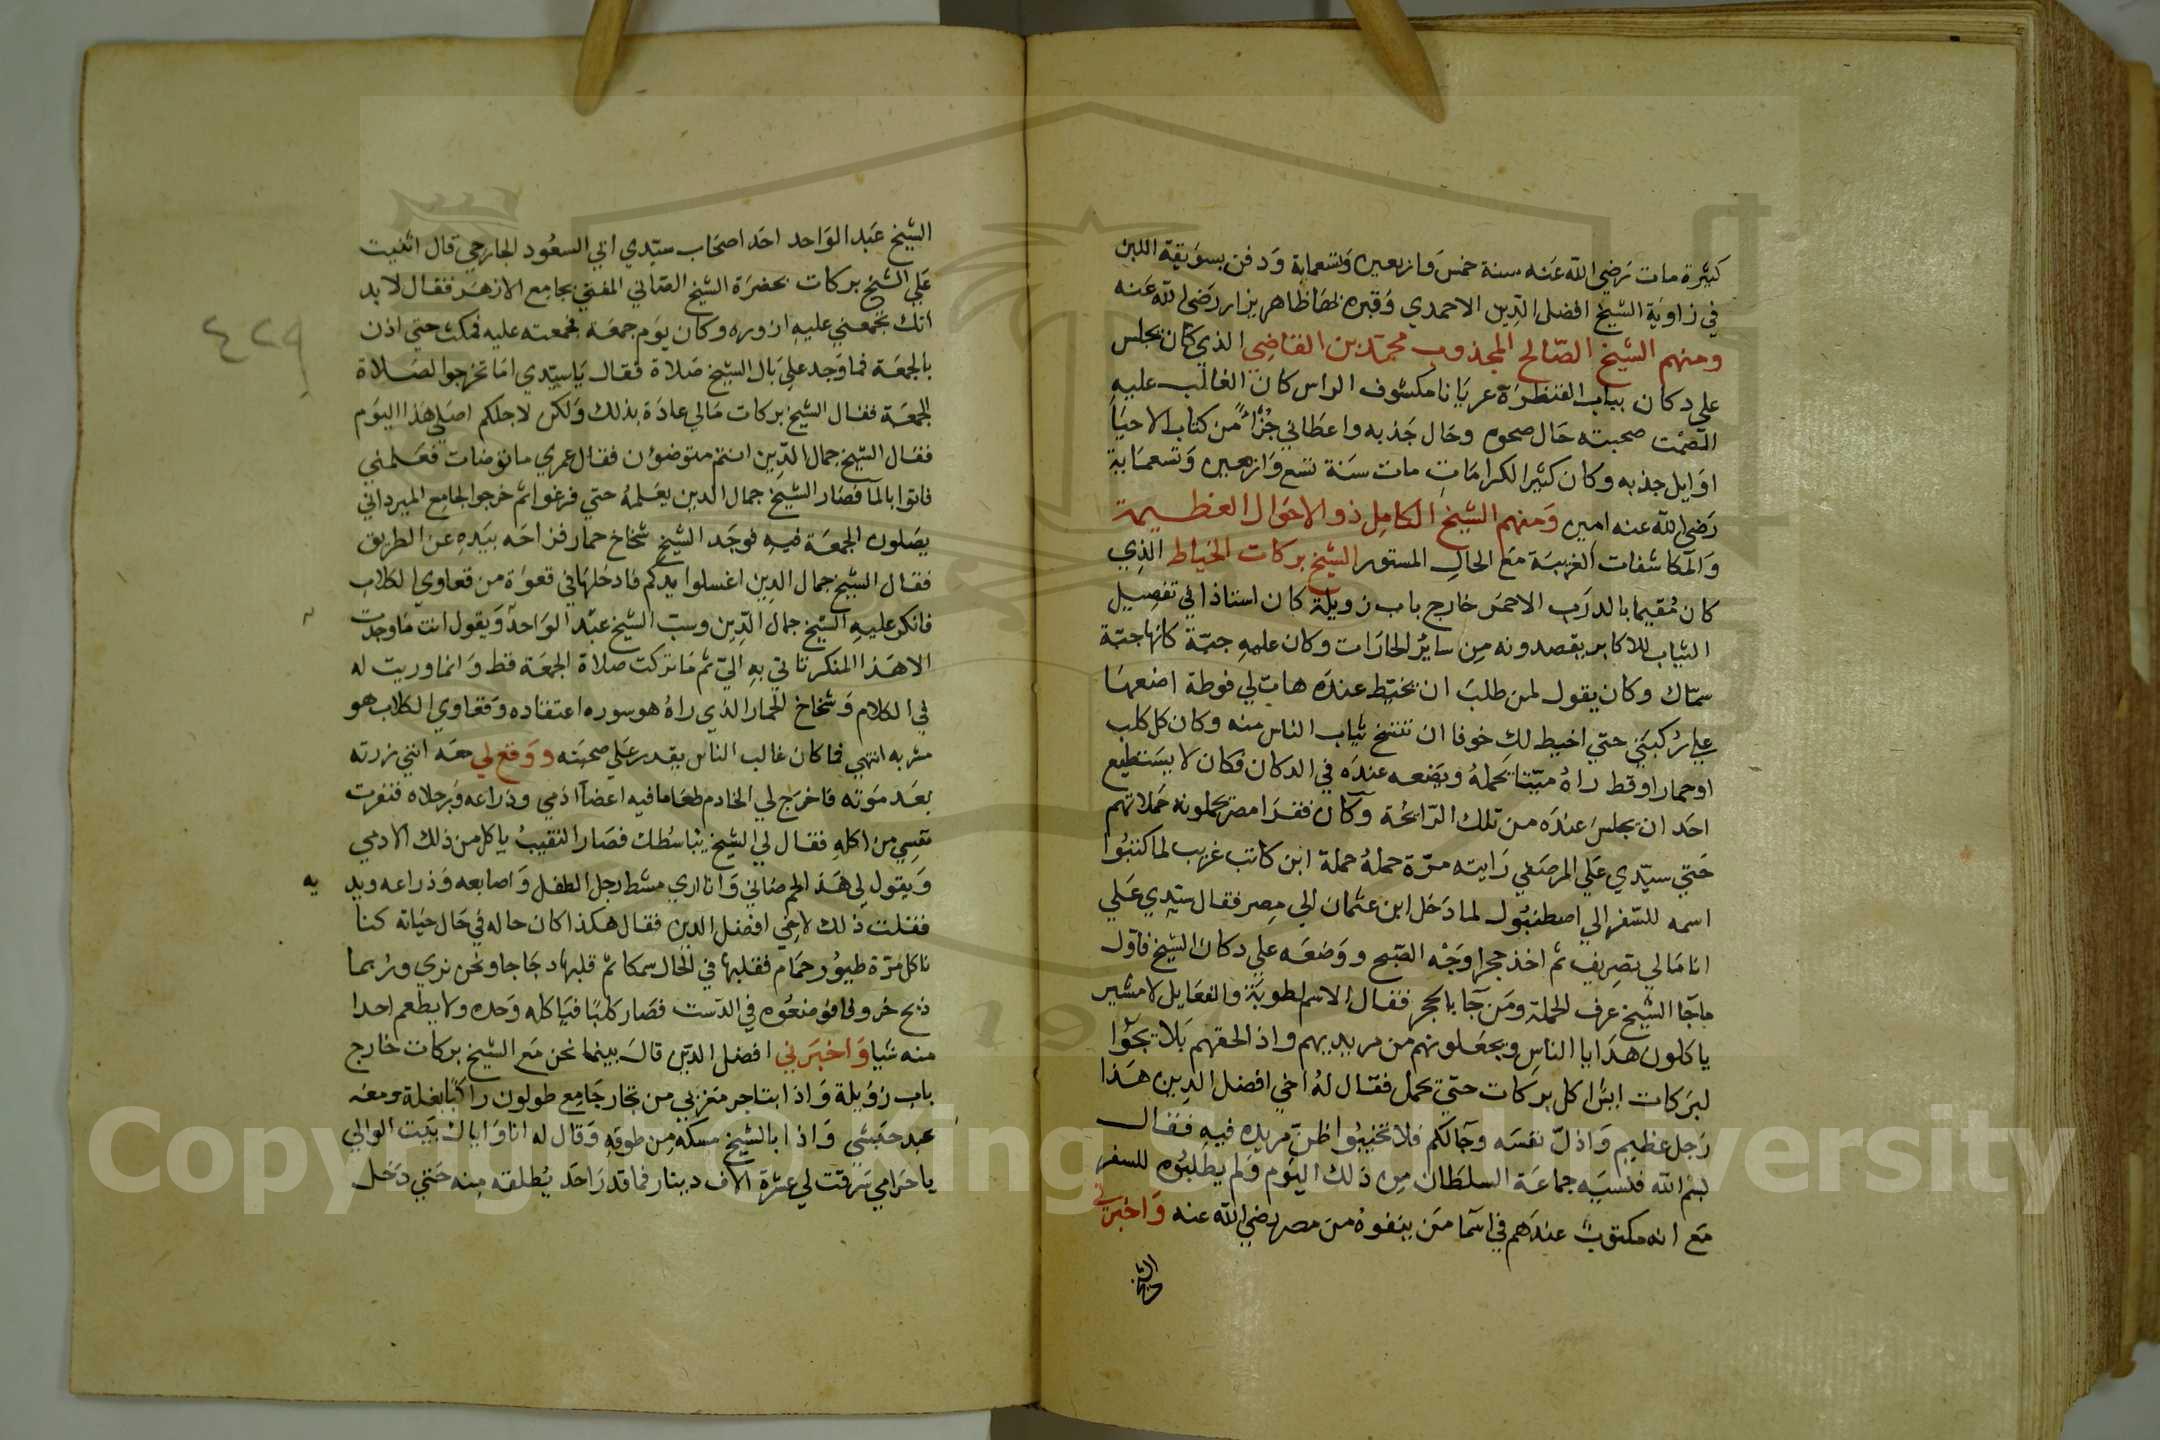 كثيرة مات رضي الله عنه سنة خمس واربعين وتسعماية ودفن بسويقة اللبن
في زاوية الشيخ افضل الدين الاحمدي وقبره بها ظاهر يزار رضي الله عنه
ومنهم الشيخ الصالح المجذوب محمد بن القاضي الذي كان يجلس
علي دكان بباب القنطرة عريانا مكشوف الراس كان الغالب عليه
الصمت صحبته حال صحوه وحال جذبه واعطاني جزأ من كتاب الاحيا
اوايل جذبه وكان كثير الكرامات مات سنة تسع واربعين وتسعماية
رضي الله عنه امين ومنهم الشيخ الكامل ذو الاحوال العظيمة
والمكاشفات الغريبة مع الحال المستور الشيخ بركات الخياط الذي
كان مقيما بالدرب الاحمر خارج باب زويلة كان استاذا في تفصيل
الثياب للاكابر يقصدونه من ساير الحارات وكان عليه جبة كانها جبة
سماك وكان يقول لمن طلب ان يخيط عنده هات لي فوطة اضعها
علي ركبتي حتي اخيط لك خوفا ان تتسخ ثياب الناس منه وكان كل كلب
او حمار او قط راه ميتا يحمله ويضعه عنده في الدكان فكان لا يستطيع
احد ان يجلس عنده من تلك الرائحة وكان فقرا مصر يحملونه حملاتهم
حتي سيدي علي المرصفي رايته مرة حمله حملة ابن كاتب غريب لما كتبوا
اسمه للسفر الي اصطنبول لما دخل ابن عثمان الي مصر فقال سيدي علي
انا مالي تصريف ثم اخذ حجرا وجه الصبح ووضعه علي دكان الشيخ فاول
ما جا الشيخ عرف الحملة ومن جا بالحجر فقال الاسم لطوبة والفعايل لامشير
ياكلون هدايا الناس ويجعلونهم من مريديهم واذا لحقهم بلا تجوا
لبركات ايش اكل بركات حتي يحمل فقال له اخي افضل الدين هذا
رجل عظيم واذل نفسه وجا لكم فلا تخيبوا ظن مريده فيه فقال
بسم الله فنسيه جماعة السلطان من ذلك اليوم ولم يطلبوه للسفر
مع انه مكتوب عندهم في اسما من ينفوه من مصر رضي الله عنه واخبرني
الشيخ
الشيخ عبد الواحد احد اصحاب سيدي ابي السعود الجارحي قال اثنيت
علي الشيخ بركات بحضرة الشيخ الصاني المفتي بجامع الازهر فقال لا بد
انك تجمعني عليه ازوره وكان يوم جمعة فجمعته عليه فمكث حتي اذن
بالجمعة فما وجد علي بال الشيخ صلاة فقال يا سيدي اما تخرجوا لصلاة
الجمعة فقال الشيخ بركات مالي عادة بذلك ولكن لاجلكم اصلي هذا اليوم
فقال الشيخ جمال الدين انتم متوضؤن فقال عمري ما توضات فعلمني
فاتوا بالما فصار الشيخ جمال الدين يعلمه حتي فرغوا ثم خرجوا لجامع الميرداني
يصلون الجمعة فيه فوجد الشيخ شخاخ حمار فزاحه بيده عن الطريق
فقال الشيخ جمال الدين اغسلوا يدكم فادخلها في قعوة من قعاوي الكلاب
فانكر عليه الشيخ جمال الدين وسب الشيخ عبد الواحد ويقول انت ما وجدت
الا هذا المنكر تاتي به الي ثم ما تركت صلاة الجمعة قط وانما وريت له
في الكلام وشخاخ الحمار الذي راه هو سوره اعتقاده وقعاوي الكلاب هو
مشربه انتهي فما كان غالب الناس يقدر علي صحبته ووقع لي معه انني زرته
بعد موته فاخرج لي الخادم طعاما فيه اعضا ادمي وذراعه ورجلاه فنفرت
نفسي من اكله فقال لي الشيخ يباسطك فصار النقيب ياكل من ذلك الادمي
ويقول لي هذا لحم ضاني وانا اري مشط رجل الطفل واصابعه وذراعه ويد يه
فقلت ذلك لاخي افضل الدين فقال هكذا كان حاله في حال حياته كنا
ناكل مرة طيور حمام فقلبها في الحال سمكا ثم قلبها دجاجا ونحن نري وربما
ذبح خروفا فوضعوه في الدست فصار كلبا فياكله وحده ولا يطعم احدا
منه شيا واخبرني افضل الدين قال بينما نحن مع الشيخ بركات خارج
باب زويلة واذا بتاجر مغربي من تجار جامع طولون راكبا بغلة ومعه
عبد حبشي واذا بالشيخ مسكه من طوقه وقال له انا واياك بيت الوالي
يا حرامي سرقت لي عشرة الاف دينار فما قدر احد يطلقه منه حتي دخل
٤٢٩
Copyright © King Saud University